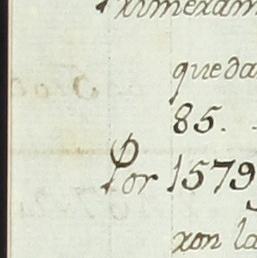 Primeram
queda
85.
Por 1579
ron la